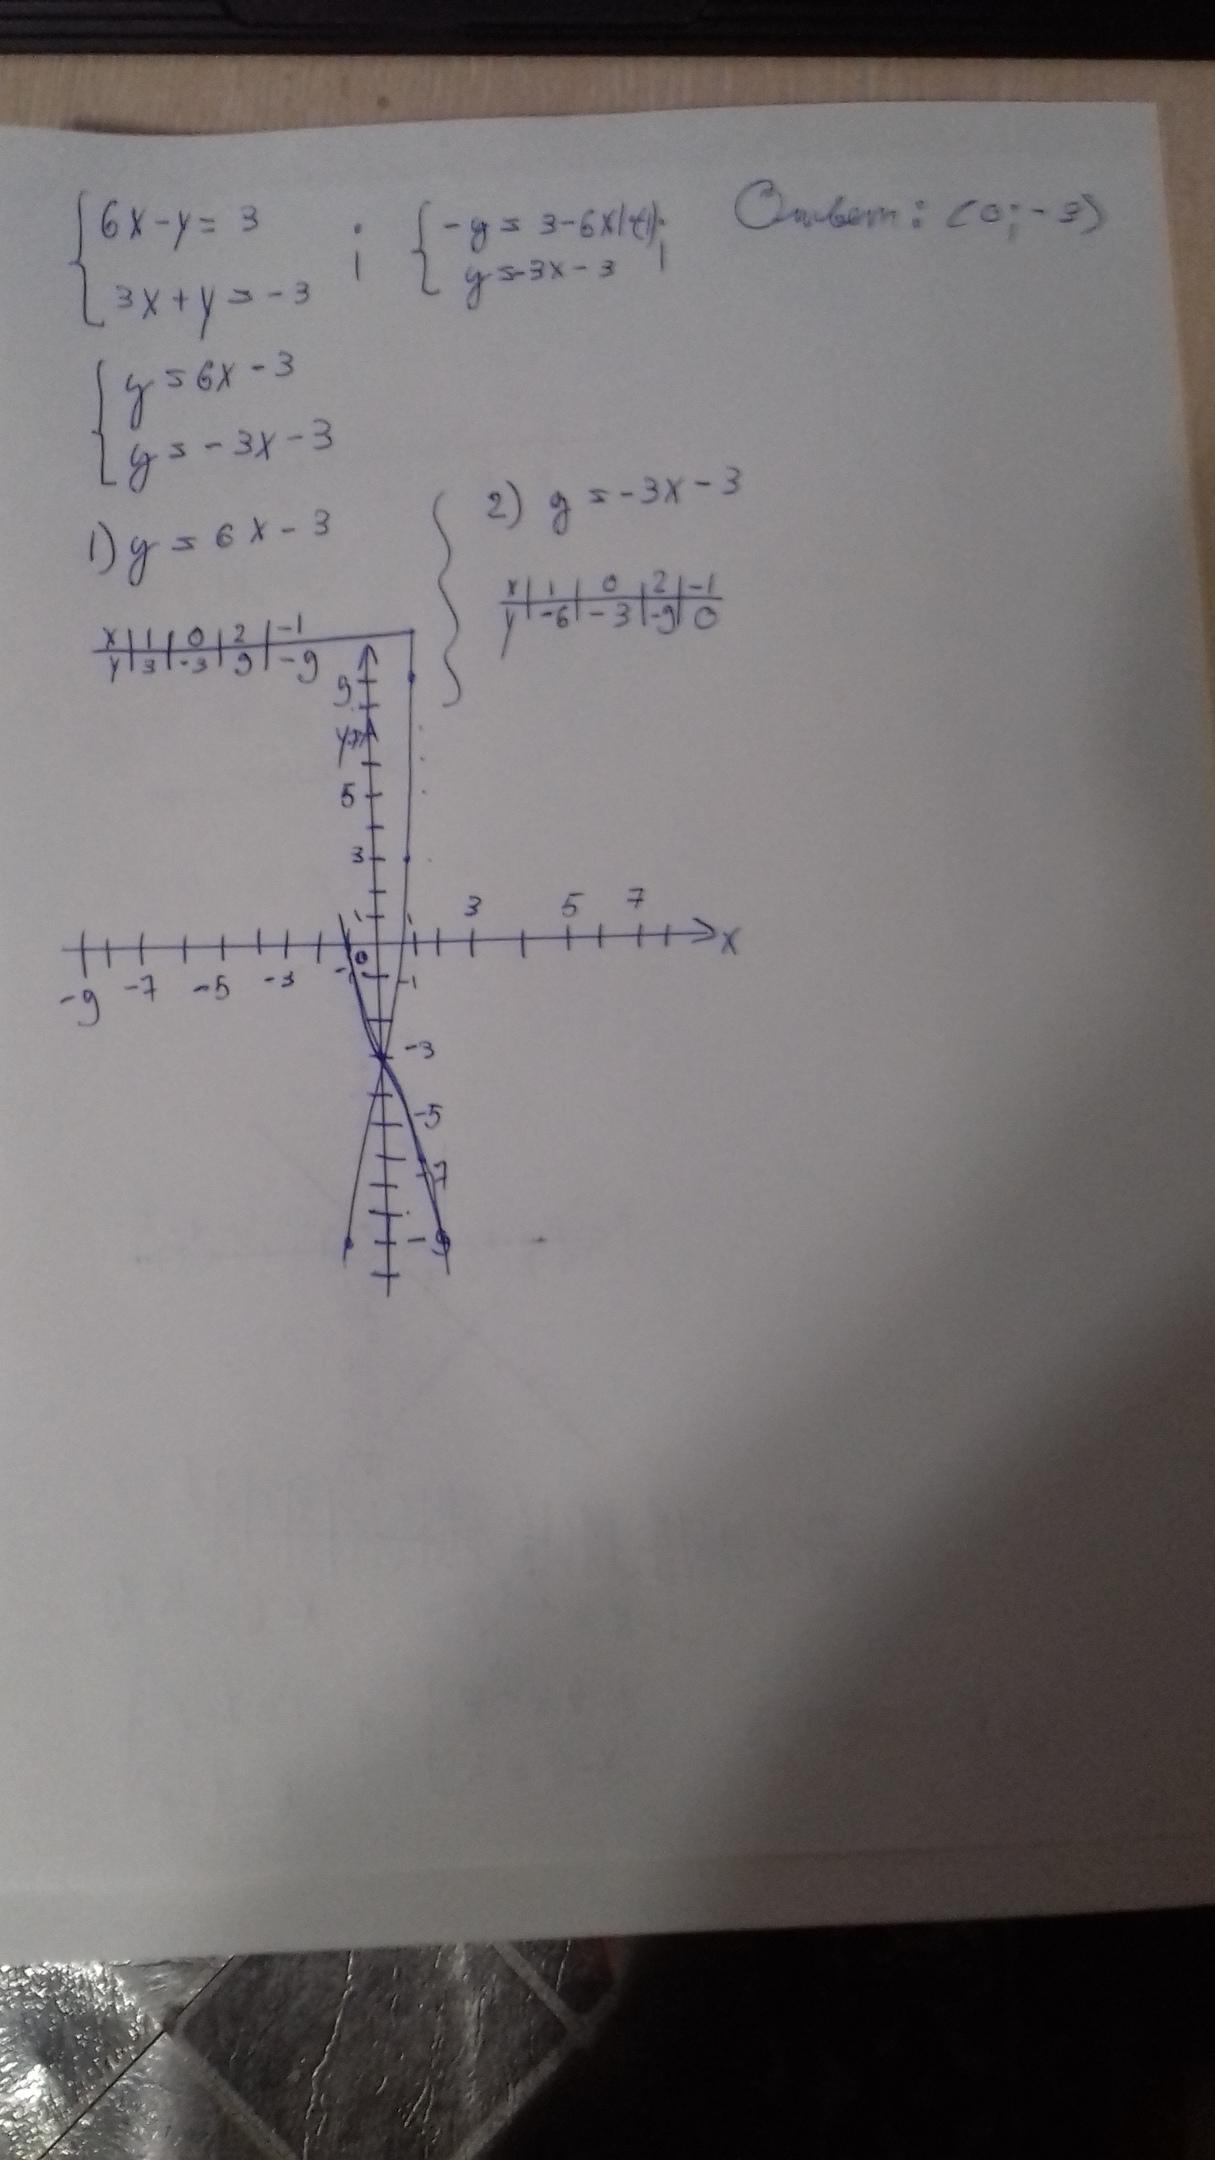 {6x-y=3 ; {-y=3-6x|(-1); Ответ: (0;-3)
3x+y=-3 y=-3x-3
{y=6x-3
y=-3x-3
1) y=6x-3 2) y=-3x-3
x|1|0|2|-1
y|3|-3|9|-9
x|1|0|2|-1
y|-6|-3|-9|0
9
y 7
5
3
1 1 3 5 7
x
-9 -7 -5 -3 -1 0 -1
-3
-5
-7
-9